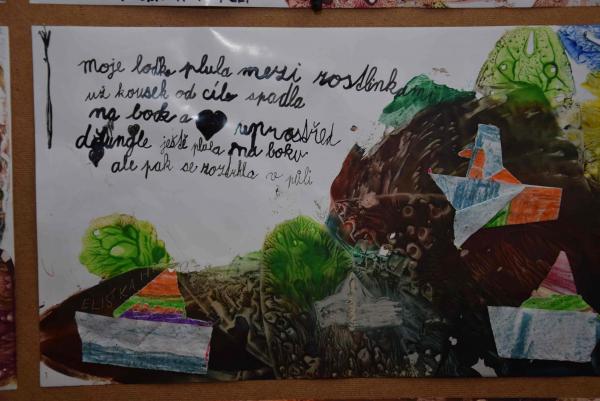 moje loďka plula mezi rostlinkami,
už kousek od cíle spadla
na bok a uprostřed
džungle ještě plula na boku
ale pak se roztrhla v půli
ELIŠKA H